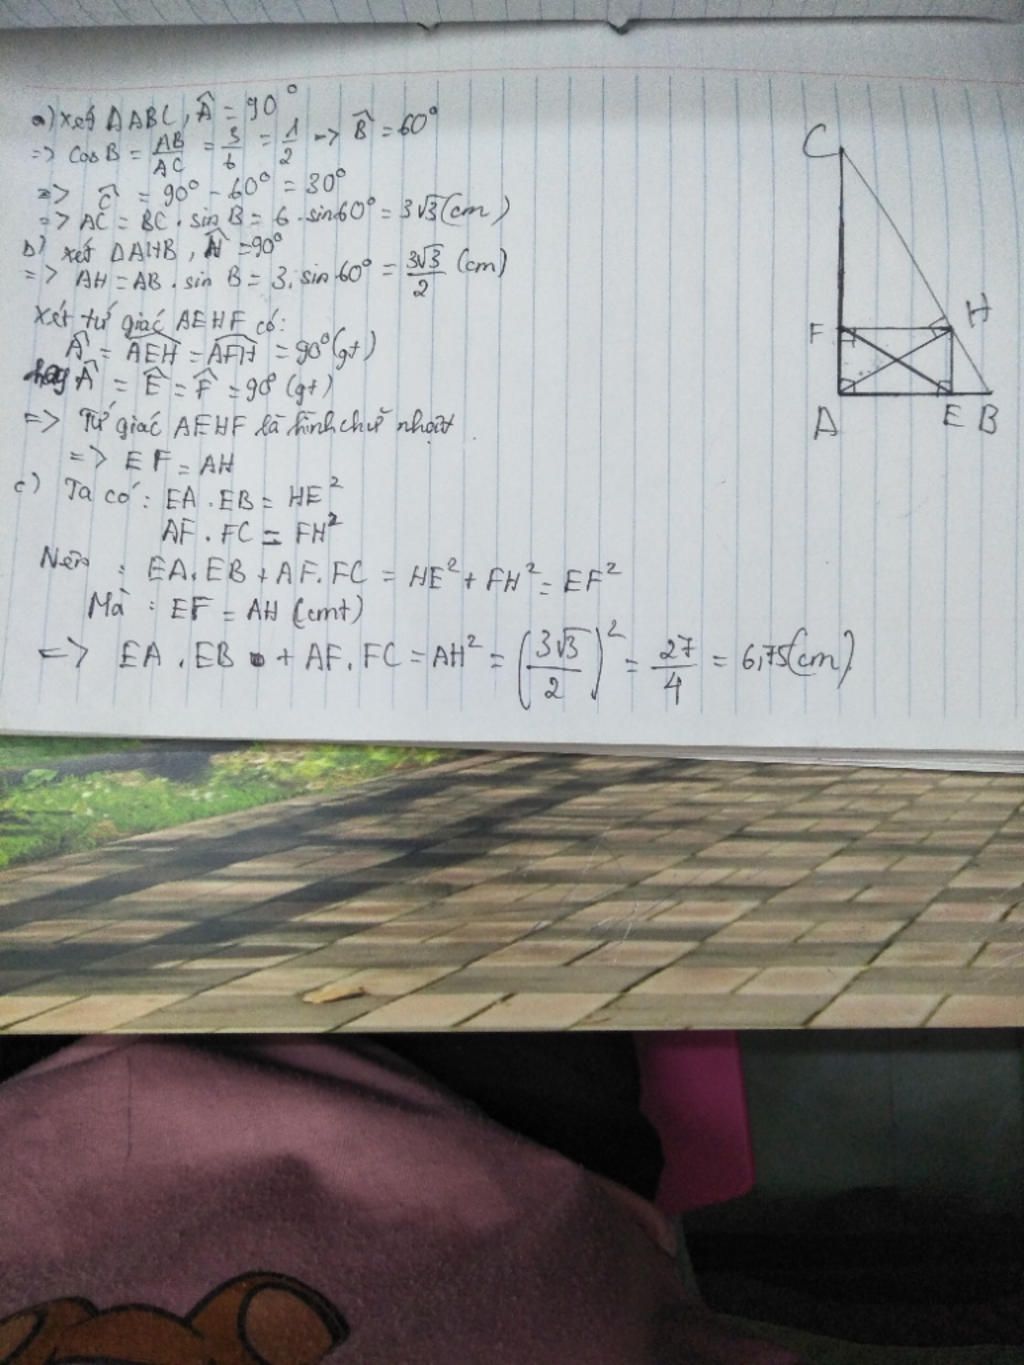 a) Xét ΔABC, Â = 90°
=> cos B = AB/AC = 3/6 = 1/2 => B̂ = 60°
=> Ĉ = 90° - 60° = 30°
=> AC = BC . sin B = 6 . sin 60° = 3√3 (cm)
b) xét ΔAHB, Ĥ = 90°
=> AH = AB . sin B = 3 . sin 60° = 3√3/2 (cm)
Xét tứ giác AEHF có:
Â = AEH = AFH = 90° (gt)
hay Â = Ê = F̂ = 90° (gt)
=> Tứ giác AEHF là hình chữ nhật
=> EF = AH
c) Ta có : EA . EB = HE²
AF . FC = FH²
Nên : EA . EB + AF . FC = HE² + FH² = EF²
Mà : EF = AH (cmt)
=> EA . EB + AF . FC = AH² = (3√3/2)² = 27/4 = 6,75 (cm)
C
H
F
A
E B